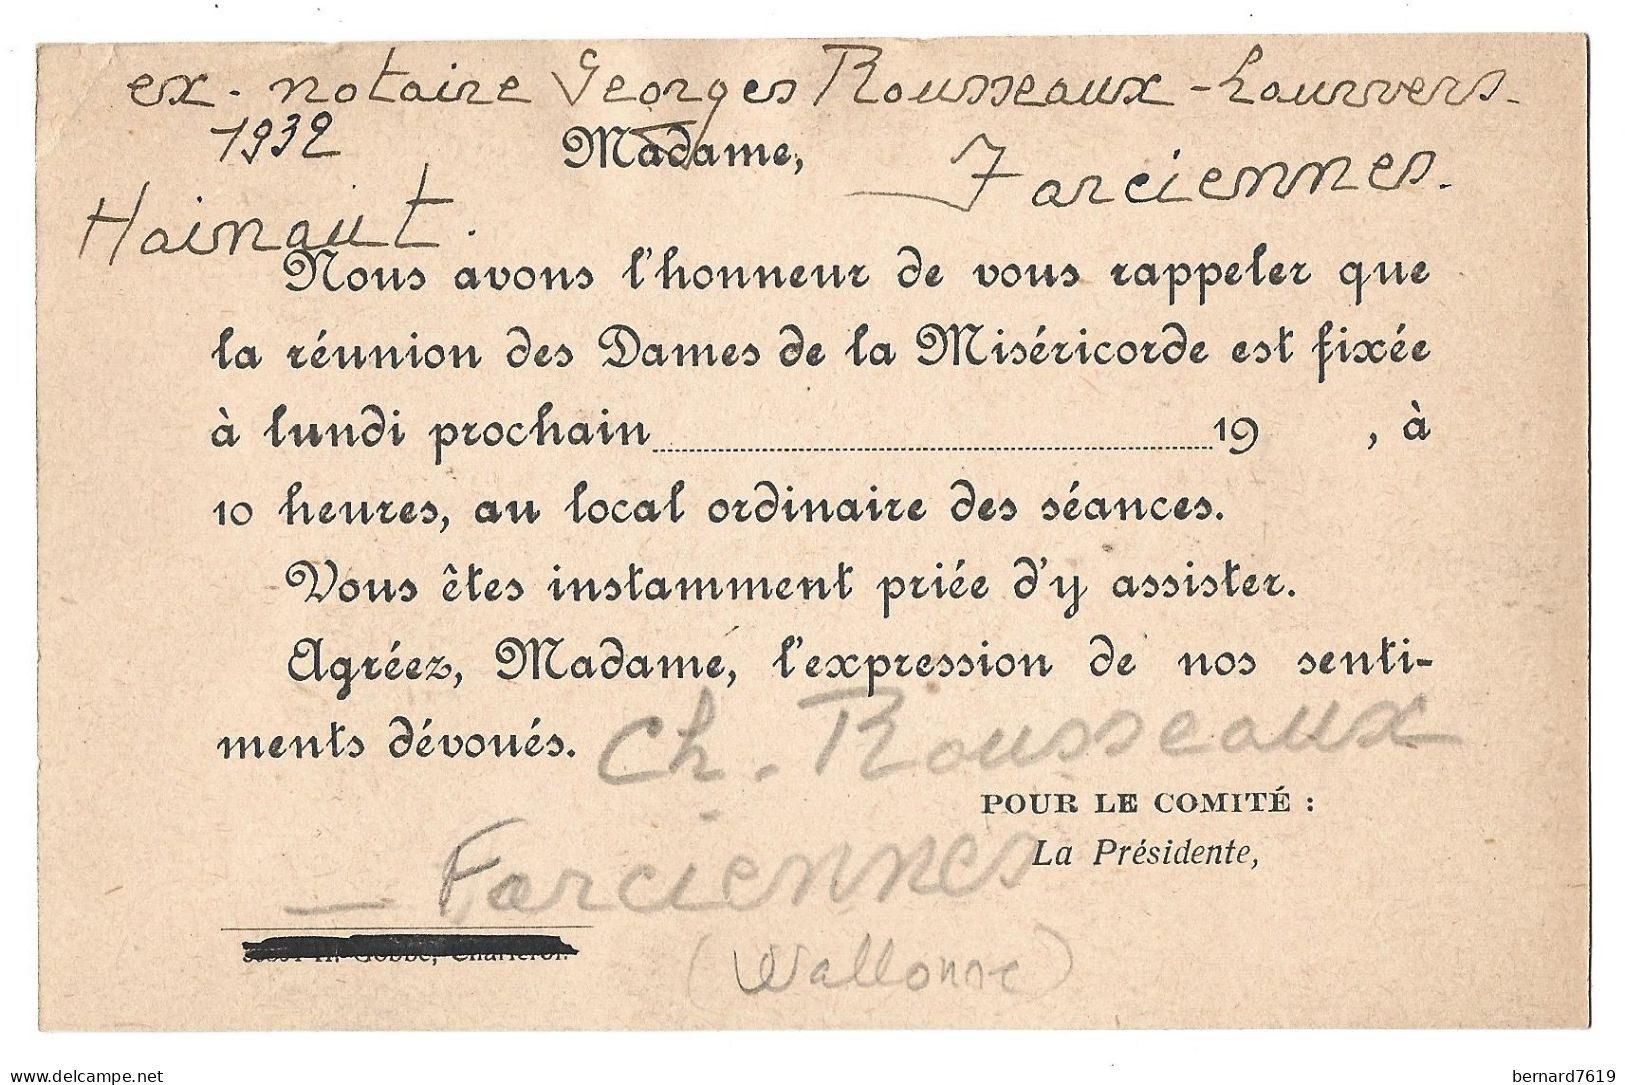 ex. notaire Georges Rousseaux - Lauwers.
1932
Madame,
Farciennes.
Hainaut.
Nous avons l'honneur de vous rappeler que
la réunion des Dames de la Miséricorde est fixée
à lundi prochain 19 , à
10 heures, au local ordinaire des séances.
Vous êtes instamment priée d'y assister.
Agréez, Madame, l'expression de nos senti-
ments dévoués.
Ch. Rousseaux
POUR LE COMITÉ :
La Présidente,
— Farciennes
H. Gobbe, Charleroi.
(Wallonne)
delcampe.net
bernard7619